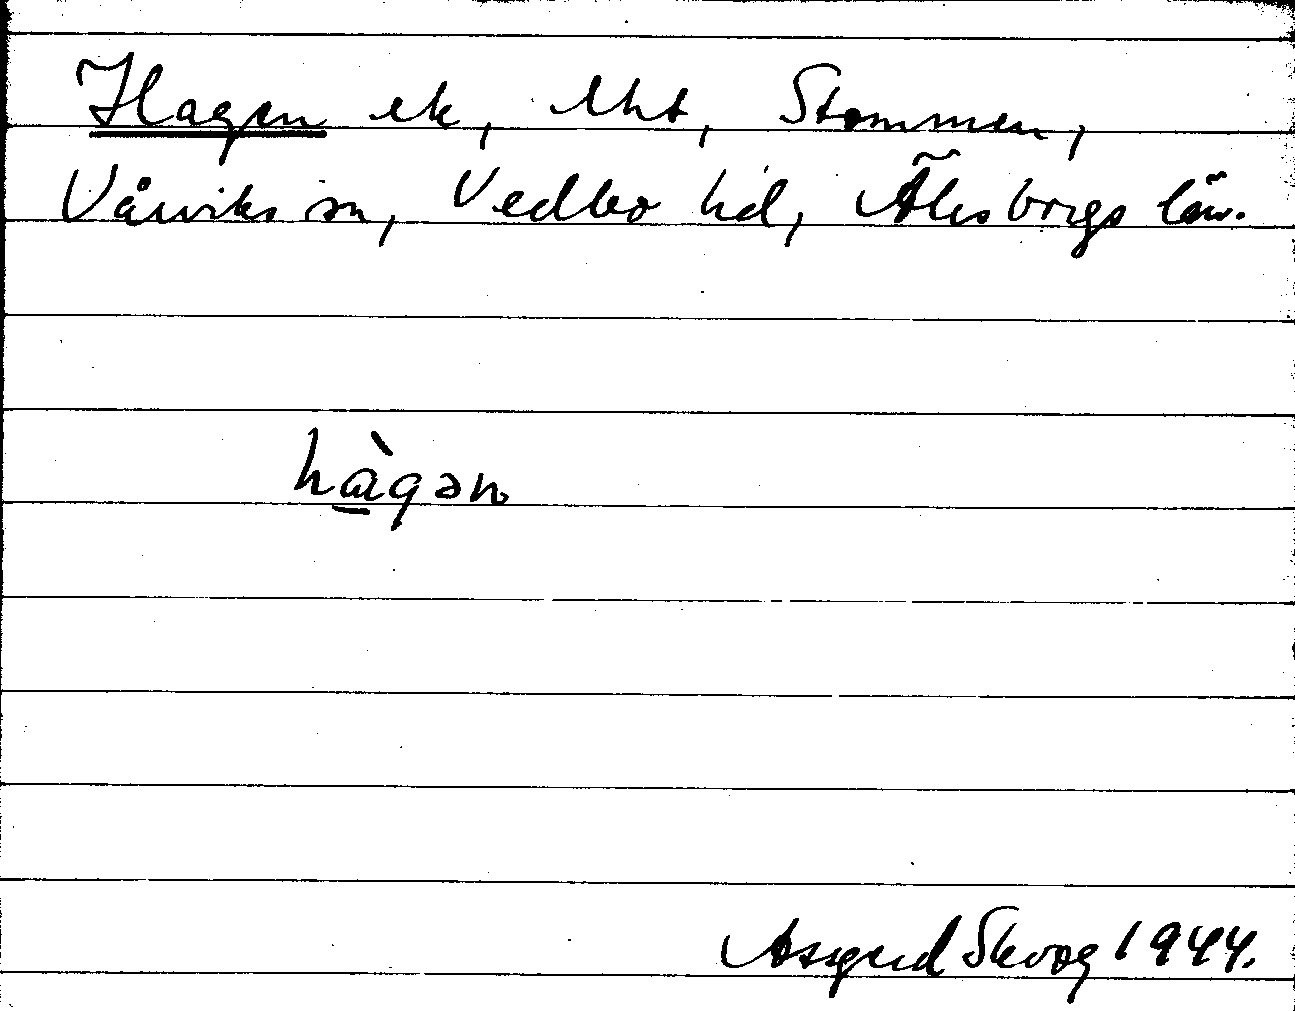 Hagen ek, lht, Stommen,
Vårviks sn, Vedbo hd, Älvsborgs län.
hàgən
Asgerd Skog 1944.